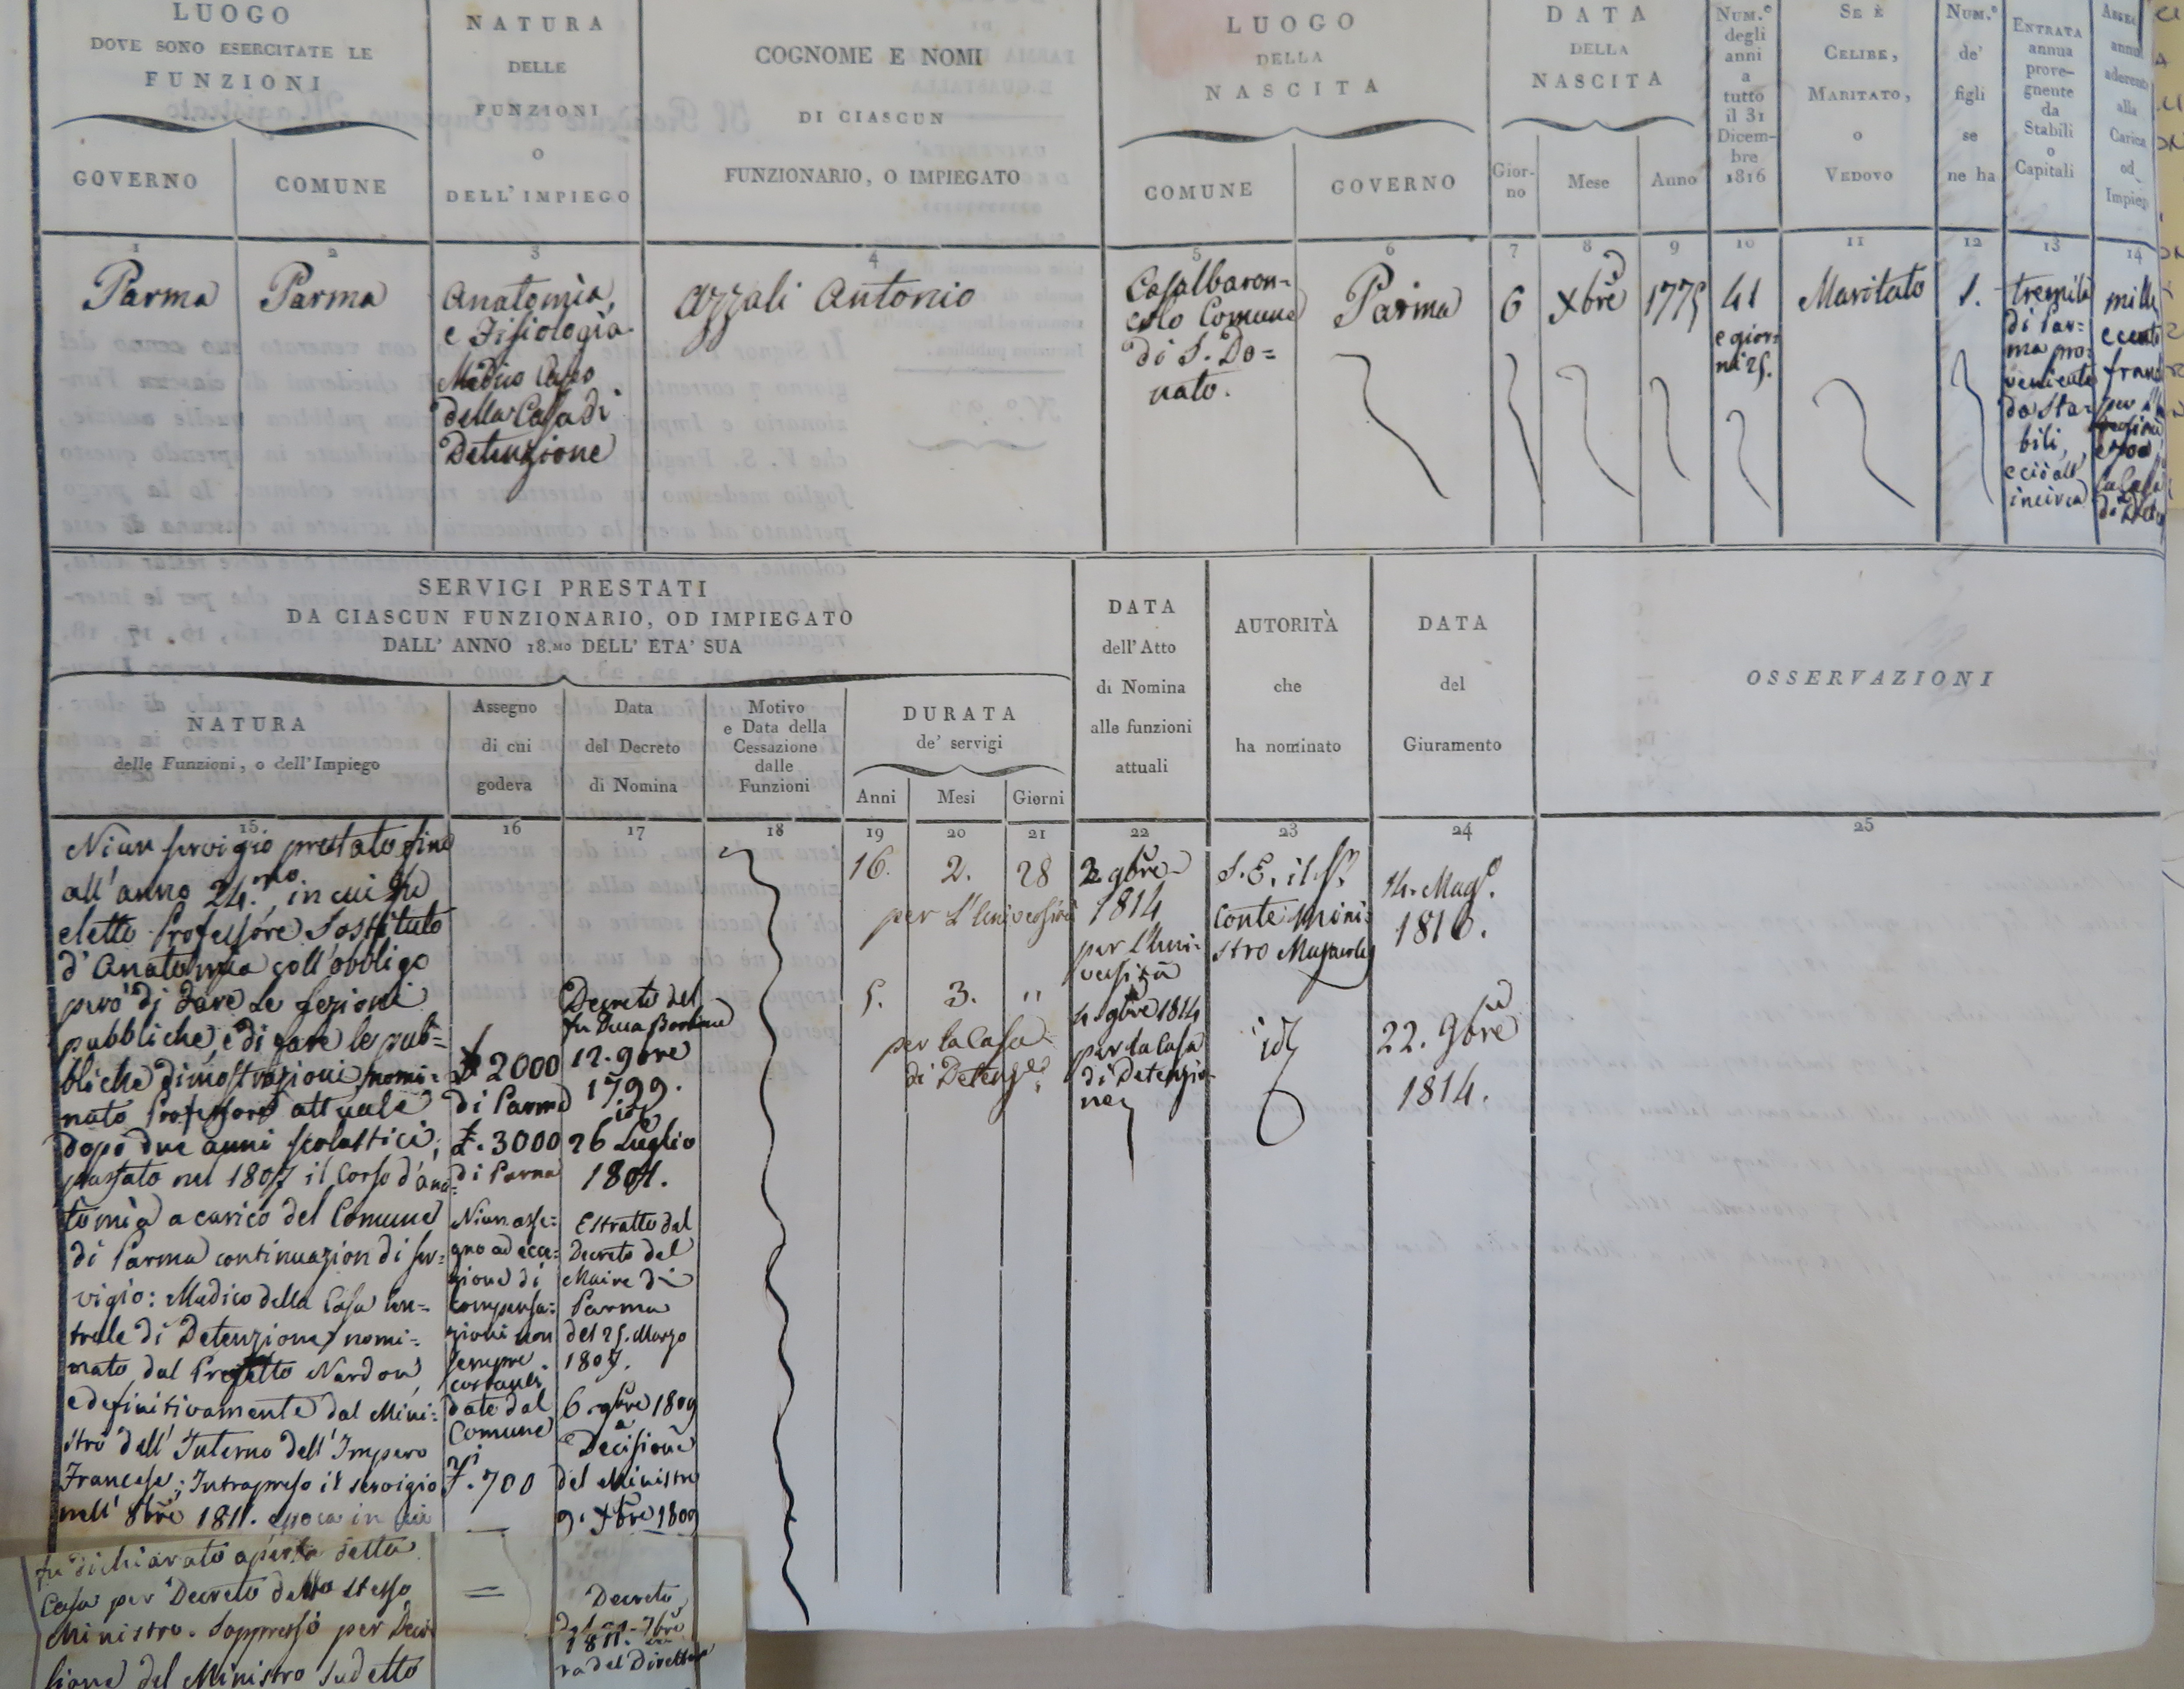 LUOGO
DOVE SONO ESERCITATE LE
FUNZIONI
GOVERNO
COMUNE
NATURA
DELLE
FUNZIONI
O
DELL' IMPIEGO
COGNOME E NOMI
DI CIASCUN
FUNZIONARIO, O IMPIEGATO
LUOGO
DELLA
NASCITA
COMUNE
GOVERNO
DATA
DELLA
NASCITA
Gior-
no
Mese
Anno
NUM.º
degli
anni
a
tutto
il 31
Dicem-
bre
1816
SE È
CELIBE,
MARITATO,
O
VEDOVO
NUM.º
de'
figli
se
ne ha
ENTRATA
annua
prove-
gnente
da
Stabili
o
Capitali
aderente
alla
Carica
od
1
2
3
4
5
6
7
8
9
10
11
12
13
14
Parma
Parma
Anatomia,
e Fisiologia
Medico Capo
della Casa di
Detenzione
Azzali Antonio
Casalbaron-
colo Comune
di S. Do=
nato.
Parma
6
Xbre
1775
41
e gior-
ni 25.
Maritato
1.
tremila
di Par=
ma pro=
veniente
da Sta=
bili,
e ciò all'
incirca
mille
SERVIGI PRESTATI
DA CIASCUN FUNZIONARIO, OD IMPIEGATO
DALL' ANNO 18.MO DELL' ETA' SUA
NATURA
delle Funzioni, o dell'Impiego
Assegno
di cui
godeva
Data
del Decreto
di Nomina
Motivo
e Data della
Cessazione
dalle
Funzioni
DURATA
de' servigi
Anni
Mesi
Giorni
DATA
dell' Atto
di Nomina
alle funzioni
attuali
AUTORITÀ
che
ha nominato
DATA
del
Giuramento
OSSERVAZIONI
15
16
17
18
19
20
21
22
23
24
25
Niun servigio prestato fino
all'anno 24.mo, in cui fu
eletto Professore Sostituto
d'Anatomia coll'obbligo
però di dare le lezioni
pubbliche, e di fare le pub=
bliche dimostrazioni, nomi=
nato Professore attuale
dopo due anni scolastici;
prestato nel 1807 il Corso d'ana=
tomia a carico del Comune
di Parma continuazion di ser=
vigio: Medico della Casa Cen=
trale di Detenzione, nomi=
nato dal Prefetto Nardon,
e definitivamente dal Mini=
stro dell'Interno dell'Impero
Francese; Intrapreso il servigio
nell' 8bre 1811. epoca in cui
fu dichiarato aperta detta
Casa per Decreto dello stesso
Ministro. Soppresso per Deci
sione del Ministro sudetto
2000
di Parma
£. 3000
di Parma
Niun asse=
gno ad ecce=
zione di
compensa=
zioni non
sempre
costanti
date dal
Comune
700
Decreto del
fu Duca
12. 9bre
1799.
id
26 Luglio
1801.
Estratto del
Decreto del
Maire di
Parma
del 25. Marzo
1807.
6 1809
Decisione
del Ministro
9. Xbre 1809
Decreto
1811.
ra del Direttor
16.
2.
28
per l'Università
5.
3.
"
per la Casa
di Detenz.e
9bre
1814
per l'Uni=
versità
9bre 1814
per la Casa
di Detenzio=
ne
S. E. il Sr.
Conte Mini=
stro
id
14. Mag.
1816.
22. 9bre
1814.